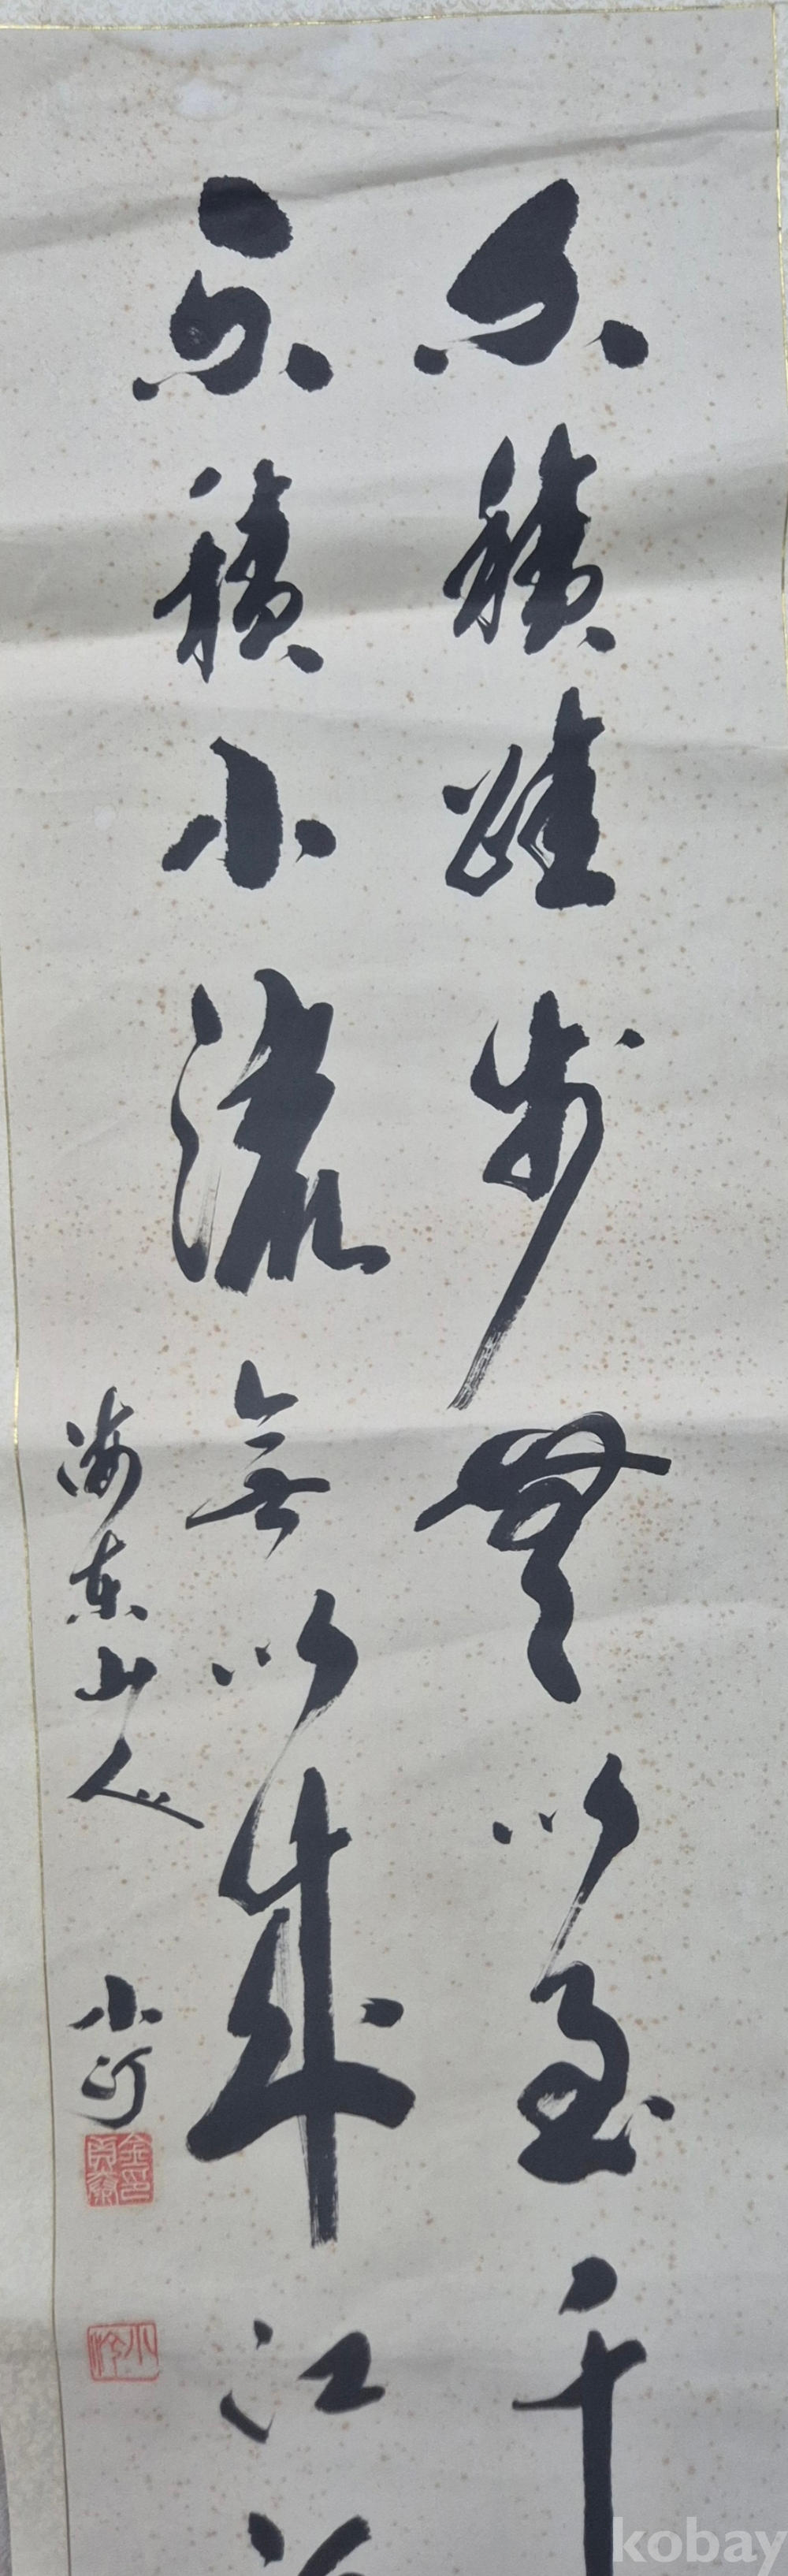 不積跬步無以至千
不積小流無以成江
海東山人 小汀
kobay